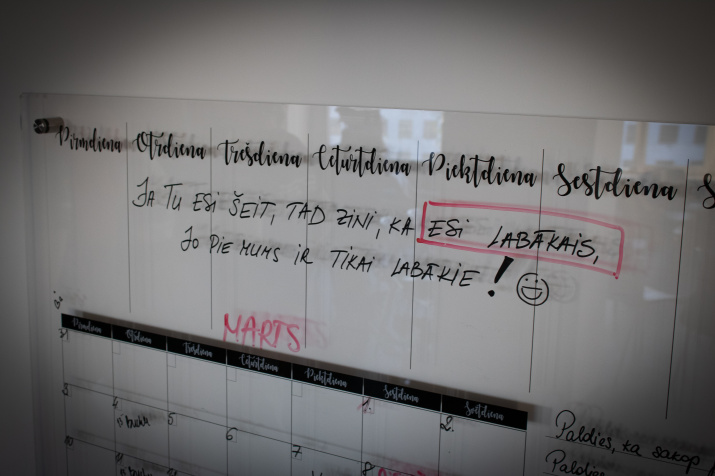 Pirmdiena Otrdiena Trešdiena Ceturtdiena Piektdiena Sestdiena S
JA TU ESI ŠEIT, TAD ZINI, KA ESI LABĀKAIS,
JO PIE MUMS IR TIKAI LABĀKIE! 
MARTS
Pirmdiena Otrdiena Trešdiena Ceturtdiena Piektdiena Sestdiena Svētdiena
1. 2.
3. 4. 5. 6. 7. 8.
10
Paldies, ka sakop
Paldies